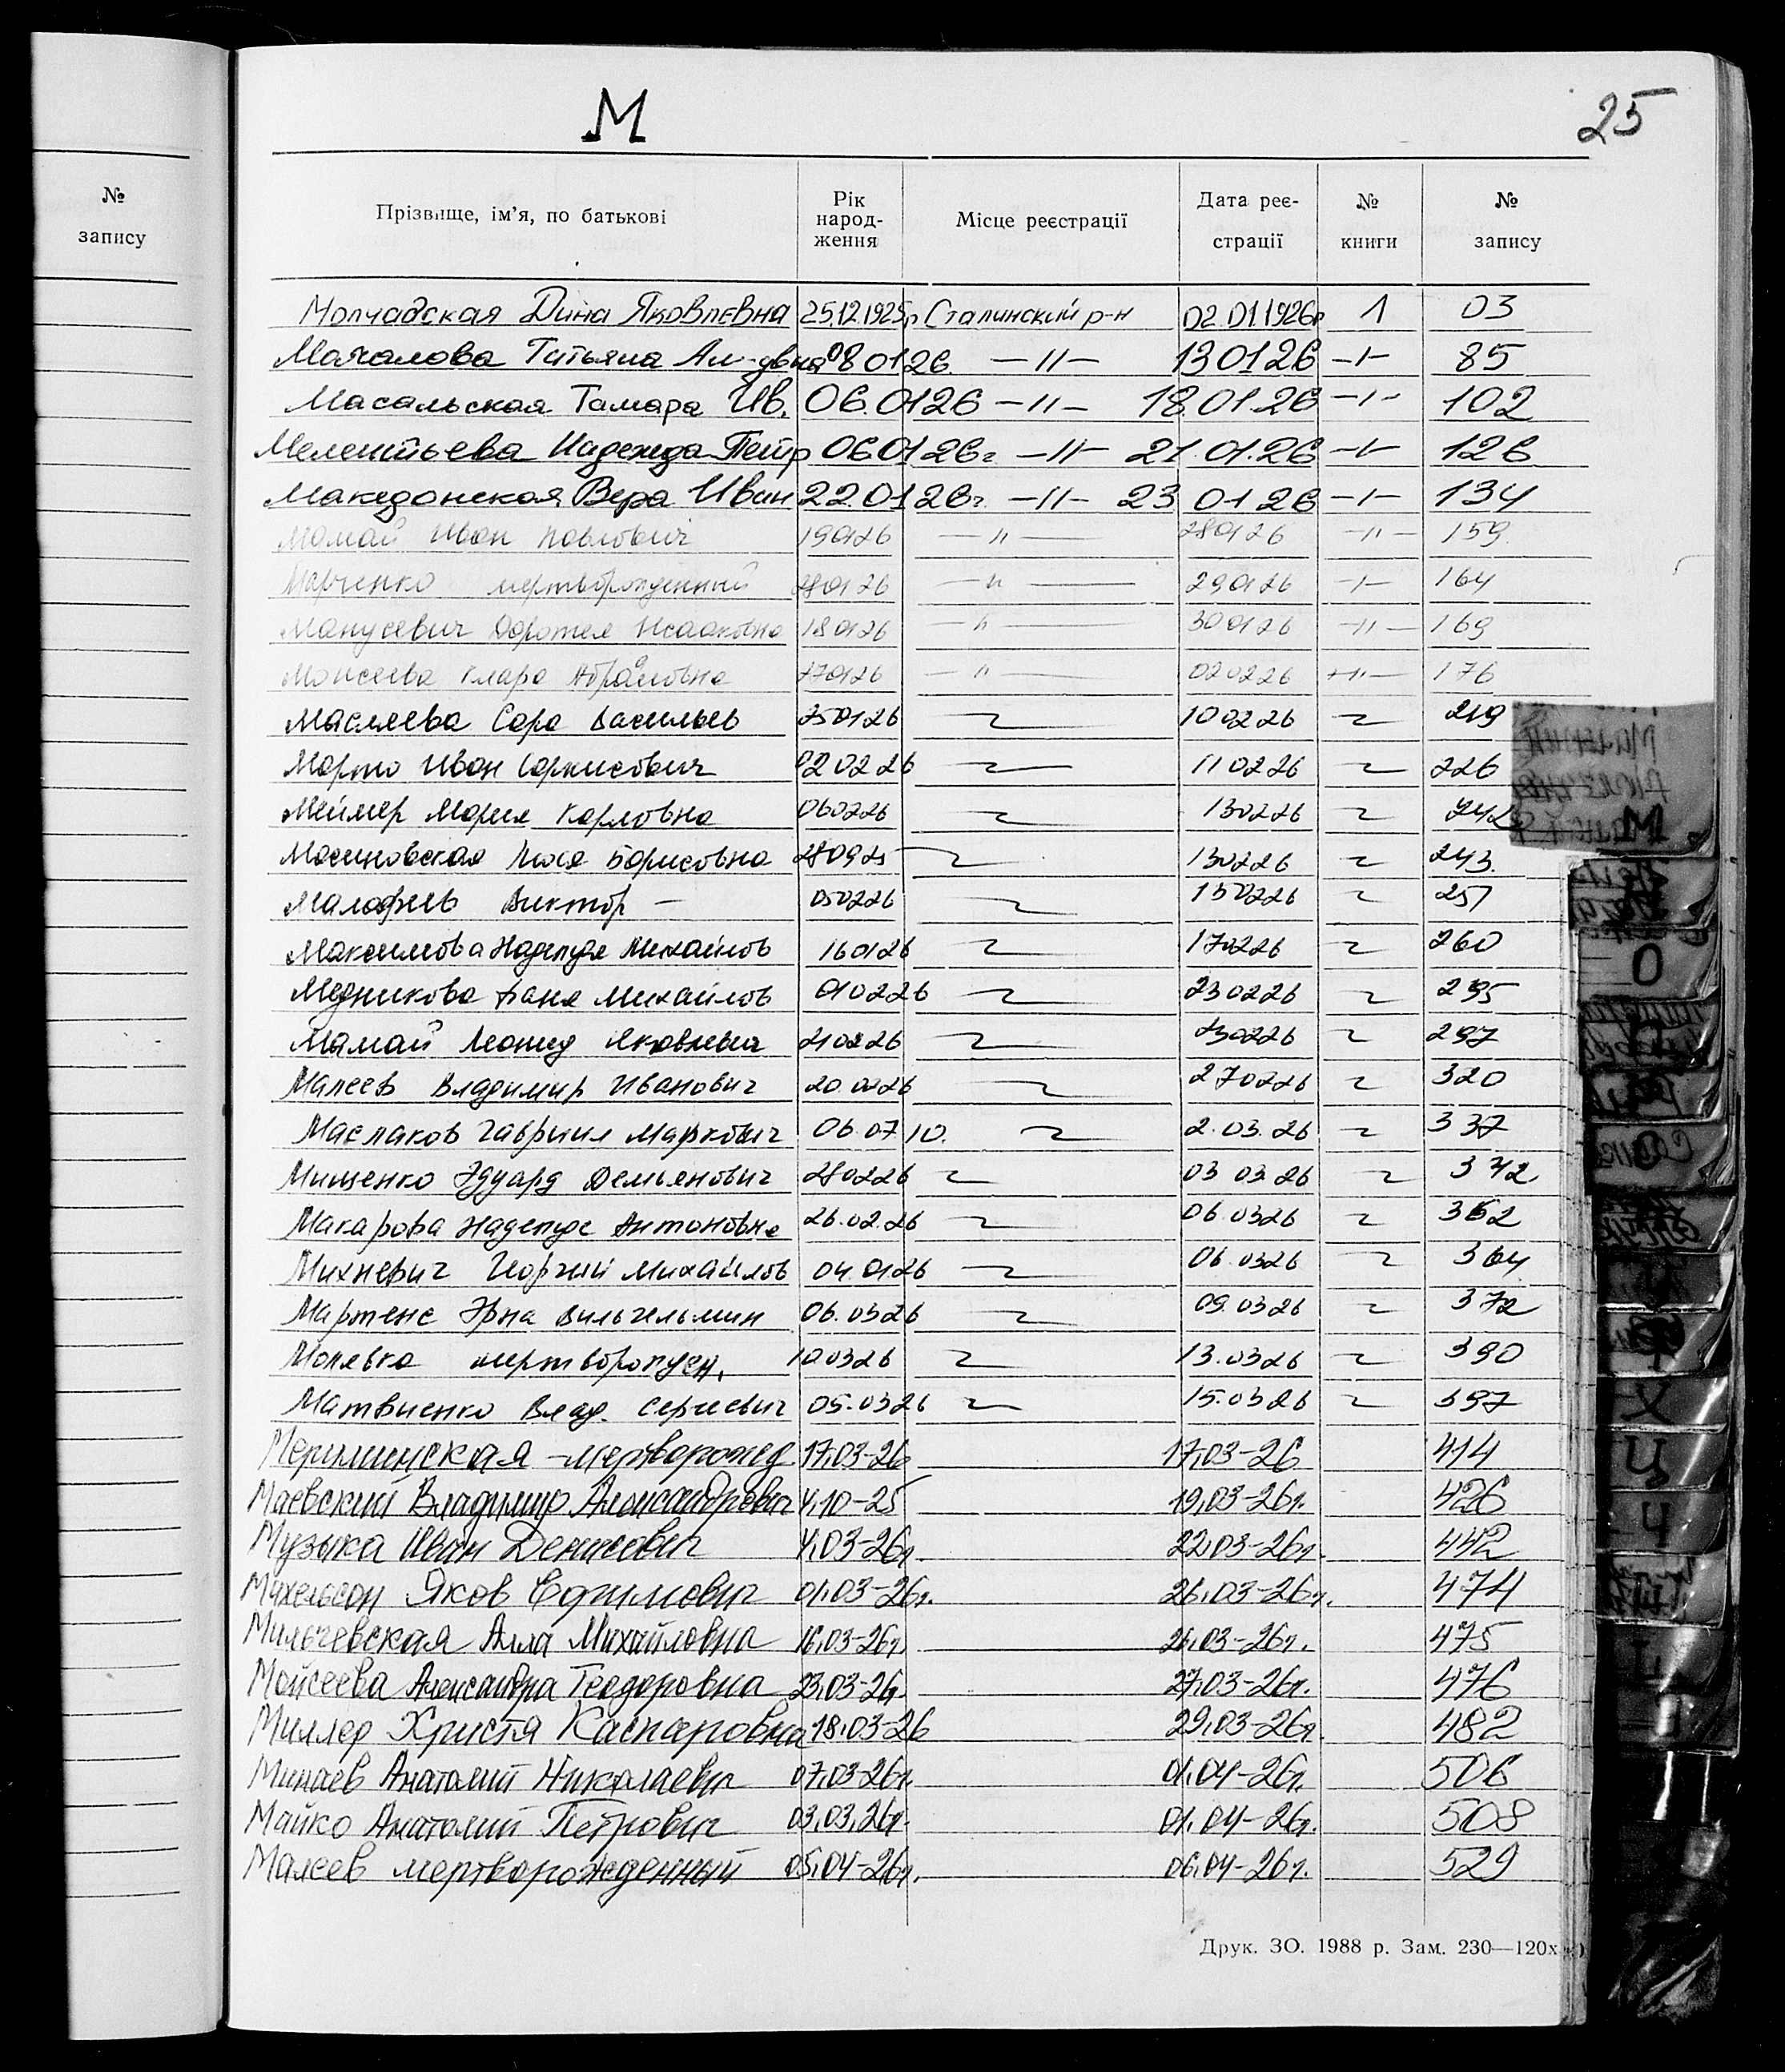 №
запису
М
25
Прізвище, ім'я, по батькові Рік народ-ження Місце реєстрації Дата реє-страції № книги № запису
Молчадская Дина Яковлєвна 25.12.1925г Сталинский р-н 02.01.1926г 1 03
Махалова Татьяна 080126 —//— 130126 —/— 85
Масальская Тамара Ив. 06.0126 —//— 18.01.26 —/— 102
Мелентьева Надежда Петр 060126г —//— 21.01.26 —/— 126
Македонская Вера Иван 22.0126г —//— 23 01 26 —/— 134
Мамай Иван Павлович 190126 —//— 280126 —//— 159
Марченко мертворожденный 280126 —//— 290126 —/— 164
Манусевич Доротея Исааковна 180126 —//— 300126 —//— 169
Моисеева Клара Абрамовна 270126 —//— 020226 —//— 176
Масляева Сара Васильев 250126 100226 219
Марто Иван Саркисович 020226 110226 226
Меймер Мария Карловна 060226 130226 242
Масиновская Люся Борисовна 280925 130226 243
Малафиев Виктор — 050226 150226 251
Максимова Надежда Михайлов 160126 170226 260
Медникова Баня Михайлов 010226 230226 295
Мамай Леонид Яковлевич 210226 230226 297
Малеев Владимир Иванович 20.0226 270226 320
Маслаков Гавриил Маркович 06.07.10. 2.03.26 337
Мищенко Эдуард Демьянович 280226 03 03.26 342
Макарова Надежда Антоновна 26.02.26 06.0326 362
Михневич Георгий Михайлов 04.0126 06.0326 364
Мартенс Эрна Вильгельмин 06.0326 09.0326 372
Молявка мертворожден. 10.0326 13.0326 390
Матвиенко Влад. Сергеевич 05.0326 15.0326 397
мертворожд 17,03-26 17,03-26 414
Маевский Владимир Александрович 4,10-25 19,03-26г. 426
Музыка Иван Денисович 4,03-26г. 22,03-26г. 442
Михельсон Яков Ефимович 01,03-26г. 26,03-26г. 474
Мильчевская Алла Михайловна 16,03-26г. 26,03-26г. 475
Мойсеева Александра Теодоровна 23,03-26г. 27,03-26г. 476
Миллер Христя Каспаровна 18,03-26 29,03-26г. 482
Минаев Анатолий Николаевич 07,03-26г. 01,04-26г. 506
Майко Анатолий Петрович 03,03,26г. 01,04-26г. 508
Малеев мертворожденный 05,04-26г. 06,04-26г. 529
Друк. ЗО. 1988 р. Зам. 230—120х
М
О
Х
Ц
Ч
Ш